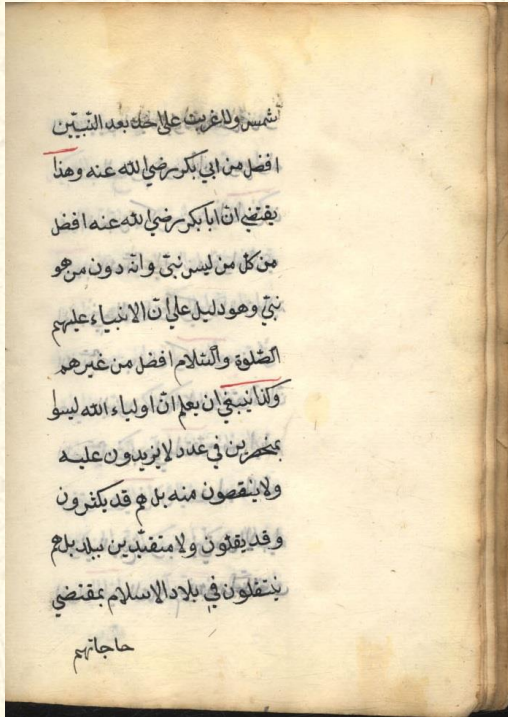 الشمس ولا غربت على احد بعد النبيّين
افضل من ابي بكر رضي الله عنه وهذا
يقتضي انّ ابا بكر رضي الله عنه افضل
من كل من ليس نبيّ وانّه دون من هو
نبيّ وهو دليل على انّ الانبياء عليهم
الصّلوة والسّلام افضل من غيرهم
وكذا ينبغي ان يعلم انّ اولياء الله ليسوا
بمنحصرين في عدد لا يزيدون عليه
ولا ينقصون منه بل هم قد يكثرون
وقد يقلّون ولا متقيّدين ببلد بل هم
ينتقلون في بلاد الاسلام بمقتضي
حاجاتهم